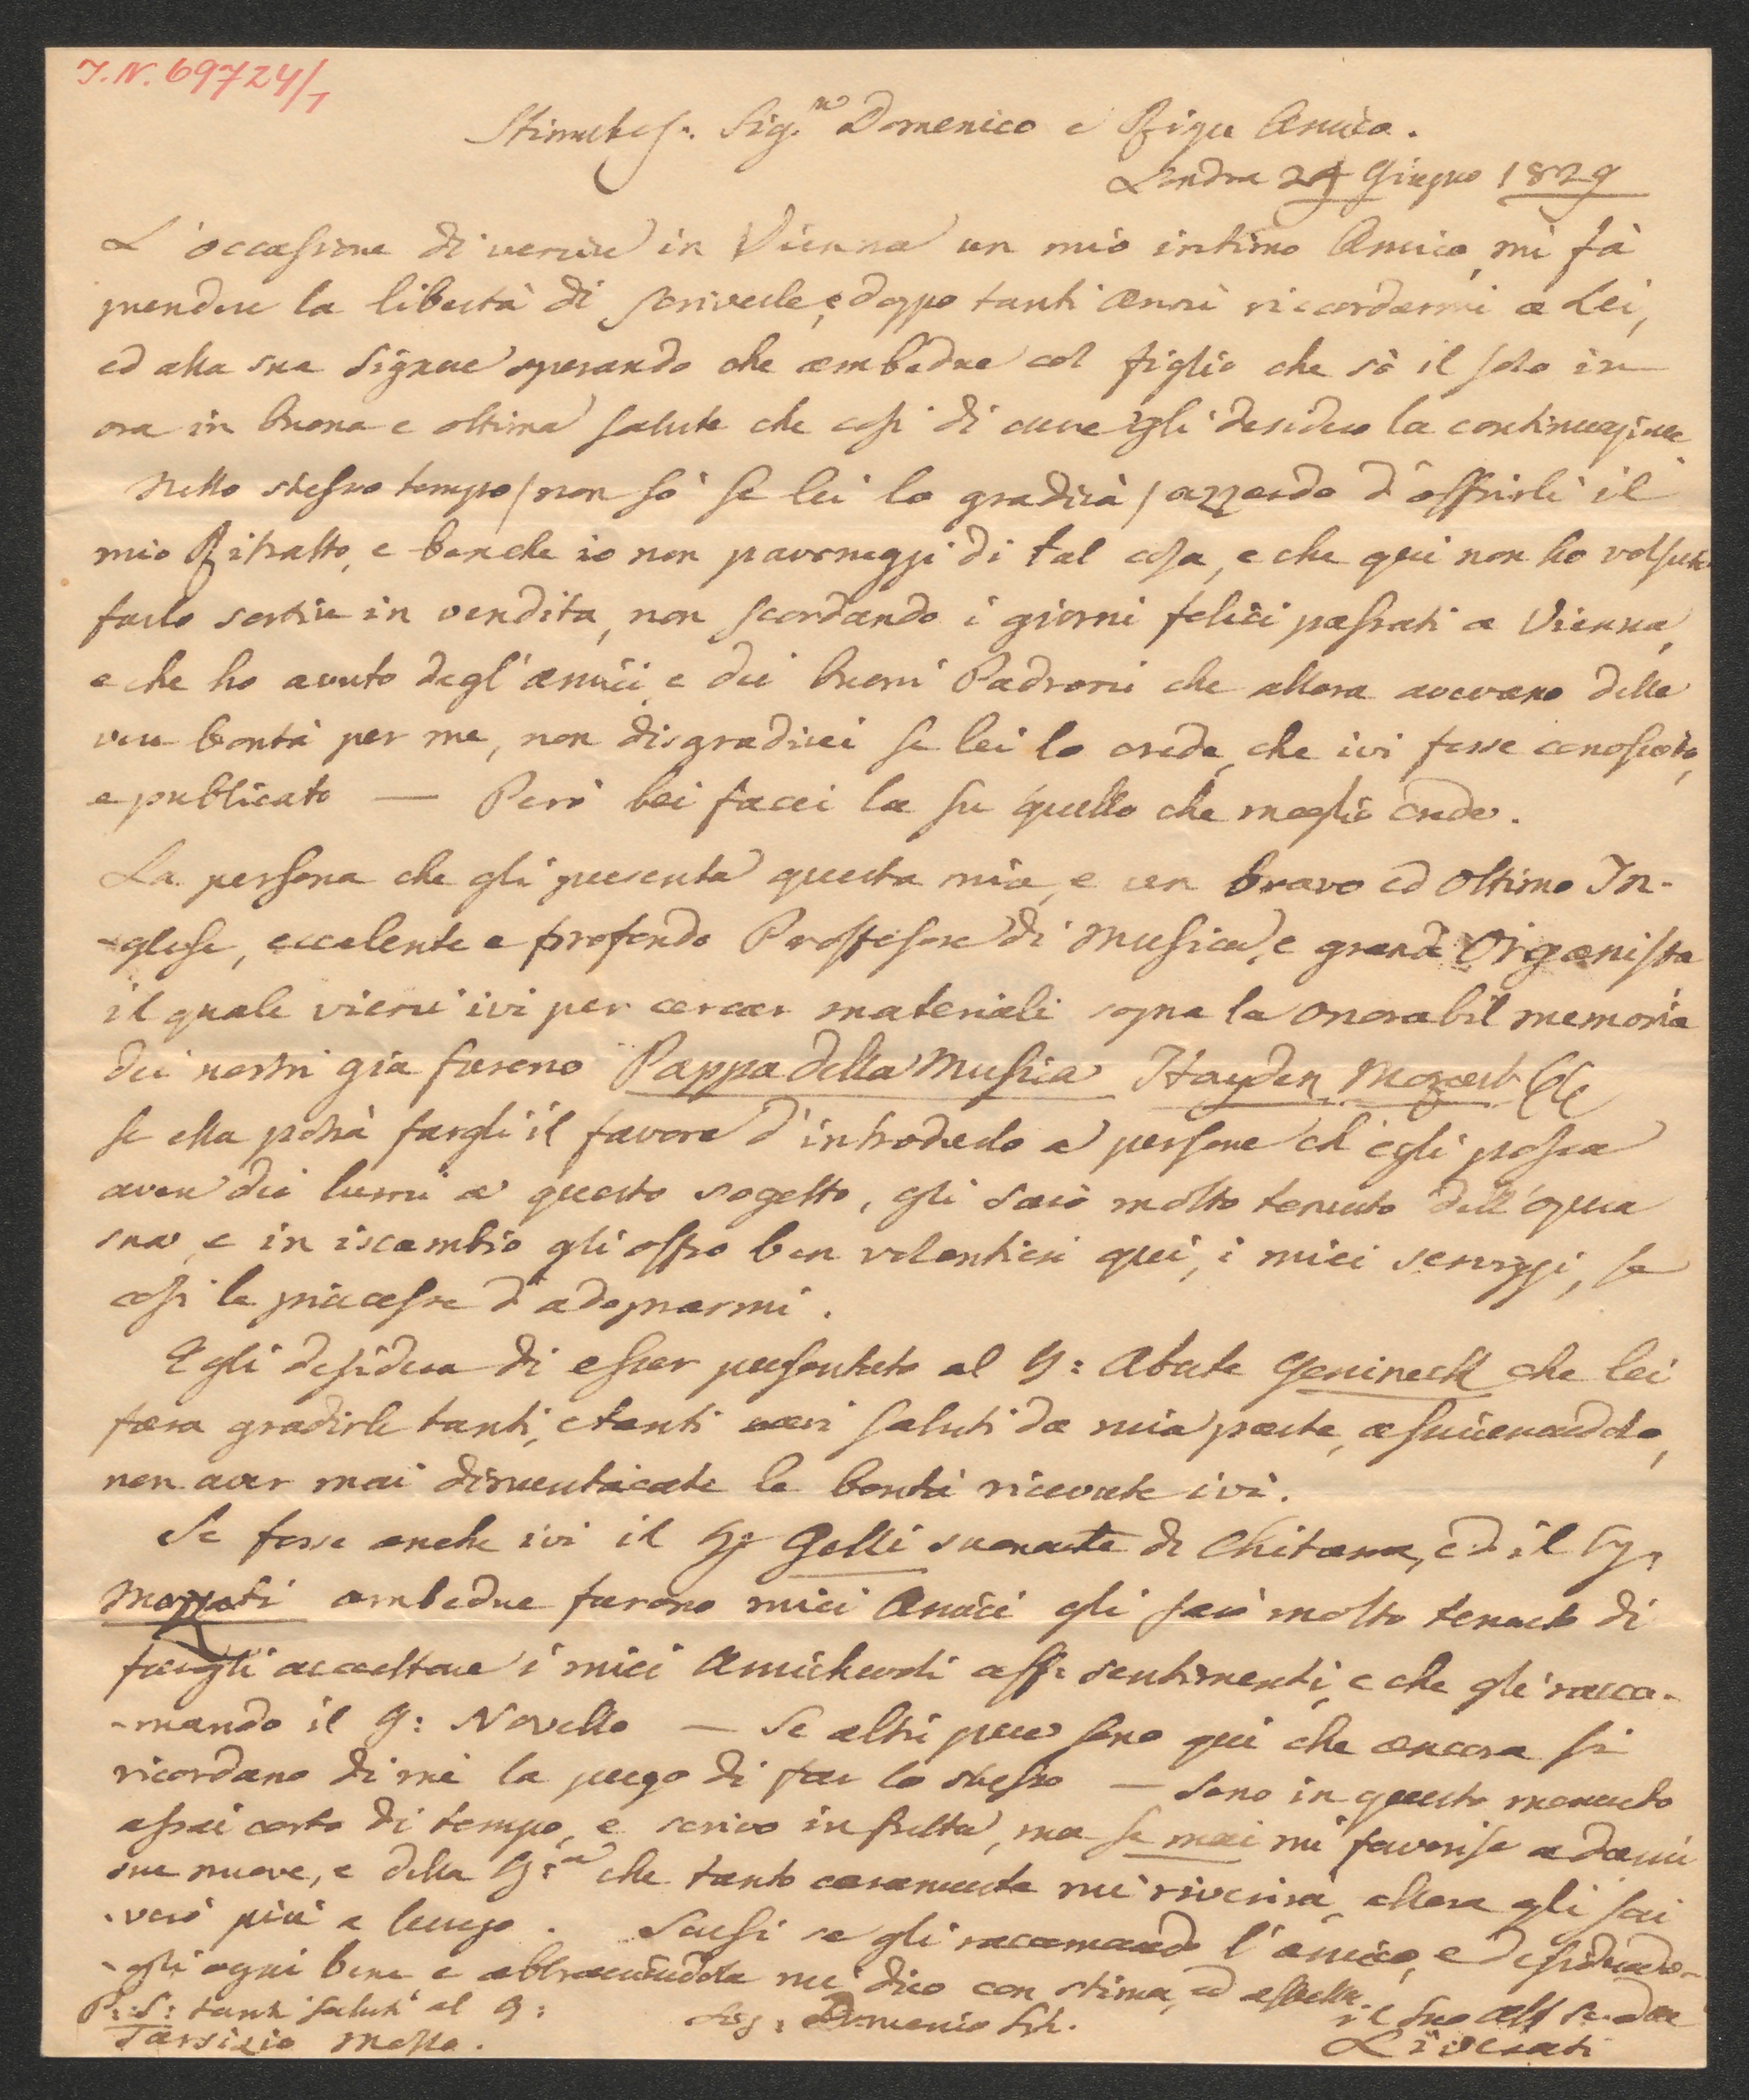 I. N. 69724/1
Stimatess.º Sig.re Domenico e Amico.
Londra 24 Giugno 1829
L'occasione di venire in Vienna un mio intimo Amico, mi fà
prendere la libertà di scriverle, e doppo tanti anni riccordarmi a Lei,
ed alla sua Signora sperando che ambedue col figlio che sò il solo in
ora in buona e ottima salute che così di cuore gli desidero la continuazione
Nello stesso tempo / non sò se lei lo gradirà / azzardo d'offrirli il
mio Ritratto, e benche io non pavoneggi di tal cosa, e che qui non ho volsuto
farlo sortire in vendita, non scordando i giorni felici passati a Vienna,
e che ho avuto degl'amici, e dei buoni Padroni che allora avevano delle
vere bontà per me, non disgradirei se lei lo crede, che ivi fosse conosciuto,
e publicato — Però lei facci la su quello che meglio crede.
La persona che gli presenta questa mia, e un bravo ed ottimo In-
-glese, eccelente e profondo Proffesore di Musica, e grand Organista
il quale viene ivi per cercar materiali sopra la onorabil memoria
dei nostri già furono Pappa della Musica Hayden, Mozart &c
se ella potrà fargli il favore d'introdurlo a persone ch'egli possa
aver dei lumi a questo sogetto, gli sarò molto tenuto dell'opera
sua, e in iscambio gli offro ben volentieri qui, i miei servizzi, se
così le piacesse d'adoprarmi.
Egli desidera di esser presentato al S: Abate Genineck che lei
fara gradirle tanti, e tanti cari saluti da mia parte, assicurandolo,
non aver mai dimenticate le bontà ricevute ivi.
Se fosse anche ivi il Sr Gelli suonate di Chitarra, ed il Sr
Mozzati ambedue furono miei Amici gli sarò molto tenuto di
fargli accettare i miei Amichevoli aff: sentimenti, e che gli racco-
-mando il S: Novello — Se altri pure sono qui che ancora si
ricordano di me la prego di far lo stesso — Sono in questo momento
assai corto di tempo, e scrivo in fretta, ma se mai mi favorisse a darmi
sue nuove, e della S:ra che tanto caramente mi riverirà, allora gli scri
-verò più a lungo. Scusi se gli racomando l'amico, e desiderando-
-gli ogni bene e abbracciandola mi dico con stima, ed
P:S: tanti saluti al S: Sig: Domenico il Suo
Tarsizio Liverati